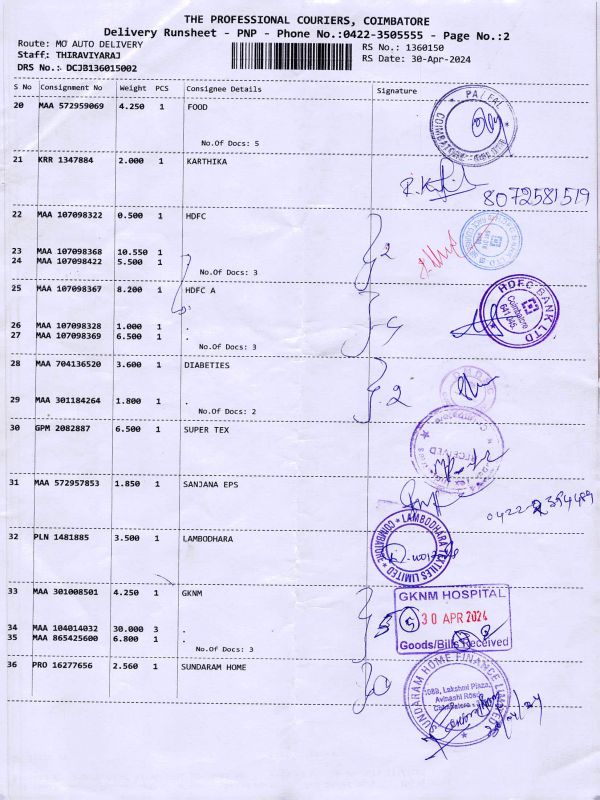 THE PROFESSIONAL COURIERS, COIMBATORE
Delivery Runsheet - PNP - Phone No.:0422-3505555 - Page No.:2
Route: MO AUTO DELIVERY RS No.: 1360150
Staff: THIRAVIYARAJ RS Date: 30-Apr-2024
DRS No.: DCJB136015002
S No Consignment No Weight PCS Consignee Details Signature
20 MAA 572959069 4.250 1 FOOD
No.Of Docs: 5
21 KRR 1347884 2.000 1 KARTHIKA
8072581519
22 MAA 107098322 0.500 1 HDFC
23 MAA 107098368 10.550 1 .
24 MAA 107098422 5.500 1 .
No.Of Docs: 3
25 MAA 107098367 8.200 1 HDFC A
HDFC BANK LTD
Coimbatore
641045
26 MAA 107098328 1.000 1 .
27 MAA 107098369 6.500 1 .
No.Of Docs: 3
28 MAA 704136520 3.600 1 DIABETIES
29 MAA 301184264 1.800 1 .
No.Of Docs: 2
30 GPM 2082887 6.500 1 SUPER TEX
RECEIVED
31 MAA 572957853 1.850 1 SANJANA EPS
32 PLN 1481885 3.500 1 LAMBODHARA
LAMBODHARA TEXTILES LIMITED
COIMBATORE
33 MAA 301008501 4.250 1 GKNM
GKNM HOSPITAL
30 APR 2024
Goods/Bills Received
34 MAA 104014032 30.000 3 .
35 MAA 865425600 6.800 1 .
No.Of Docs: 3
36 PRO 16277656 2.560 1 SUNDARAM HOME
SUNDARAM HOME FINANCE LIMITED
Lakshmi Plaza,
Avinashi Road,
Coimbatore